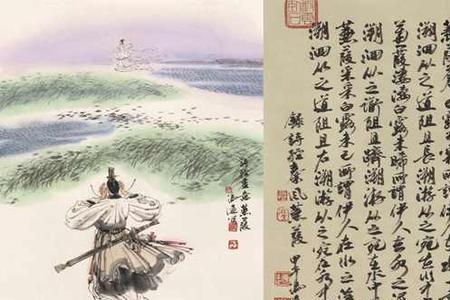 溯洄从之道阻且長溯游从之宛在水
蒹葭凄凄白露未晞所謂伊人在水之
溯洄从之道阻且躋溯游从之宛在水中
蒹葭采采白露未已所謂伊人在水之
溯洄从之道阻且右溯游从之宛在水中
錄詩經秦風蒹葭 甲午
詩經畫意蒹葭